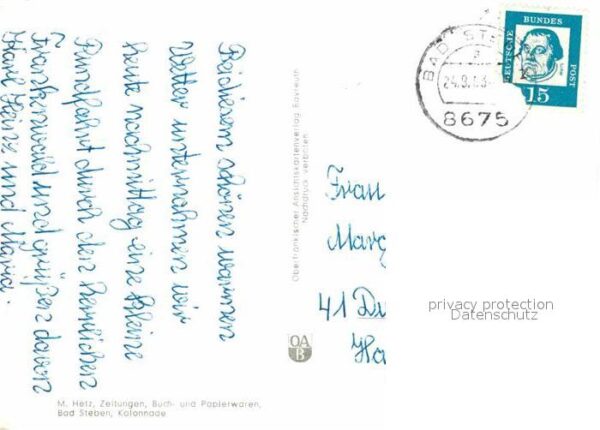 Bei diesem schönen warmen
Wetter unternehmen wir
heute nachmittag eine kleine
Rundfahrt durch den herrlichen
Frankenwald und grüßen davon
Karl Heinz und Maria.
M. Hetz, Zeitungen, Buch- und Papierwaren,
Bad Steben, Kolonnade
Oberfränkischer Ansichtskartenverlag Bayreuth
Nachdruck verboten
OA
B
BAD STE
a
24.9.63
8675
DEUTSCHE
BUNDES
POST
15
Frau
Marg
41 Du
Ha
privacy protection
Datenschutz